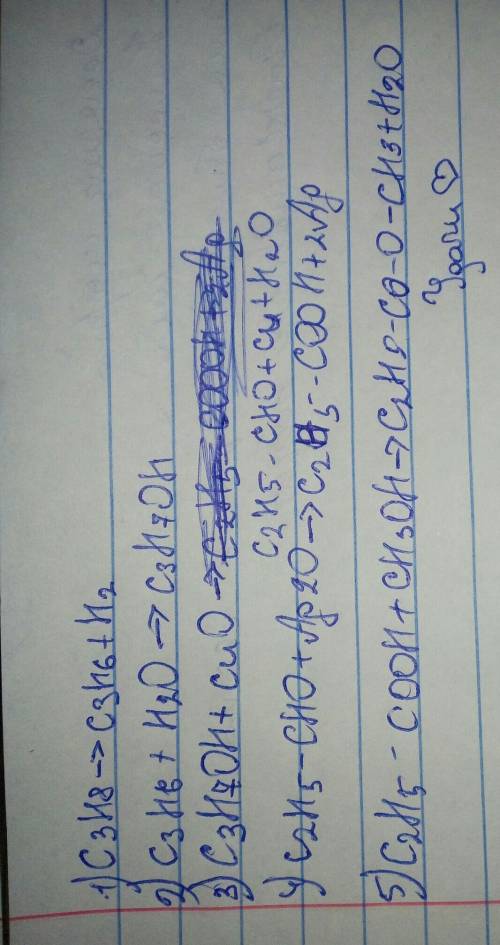 1) C3H8 → C3H6 + H2
2) C3H6 + H2O → C3H7OH
3) C3H7OH + CuO →
C2H5 - CHO + Cu + H2O
4) C2H5 - CHO + Ag2O → C2H5 - COOH + 2Ag
5) C2H5 - COOH + CH3OH → C2H5 - CO - O - CH3 + H2O
Удачи ♡